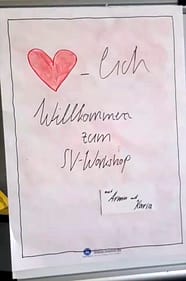 - lich
Willkommen
zum
SV-Workshop
mit Armin und
Maria